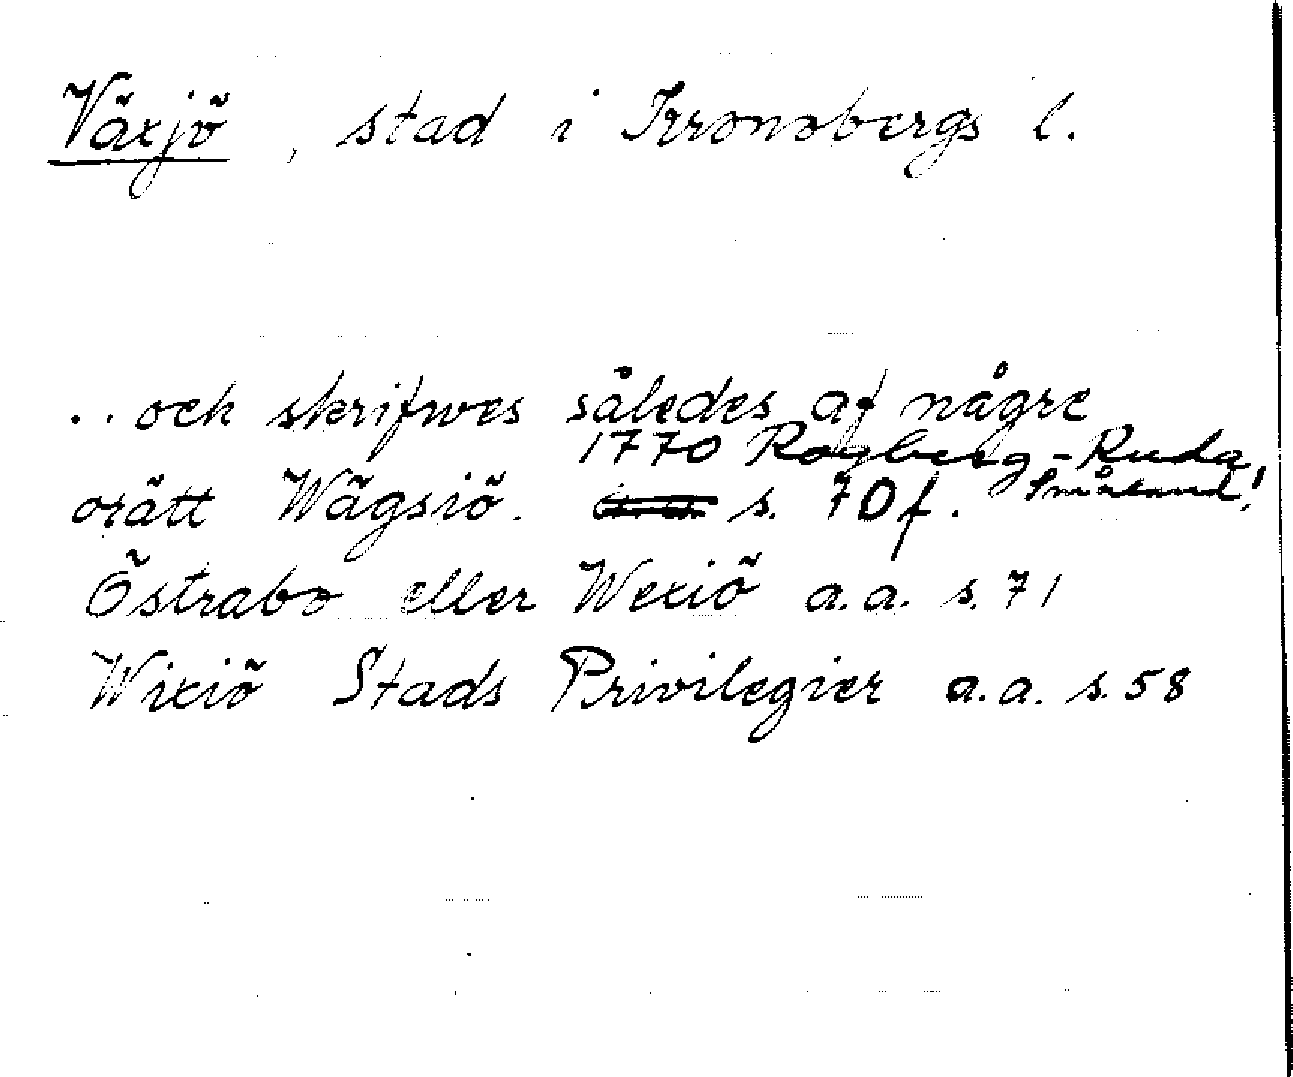 Växjö, stad i Kronobergs l.
.. och skrifwes således af någre
1770 Rogberg-Ruda,
Småland!
orätt Wägsiö. s. 70 f.
Östrabo eller Wexiö a.a. s. 71
Wixiö Stads Privilegier a.a. s. 58